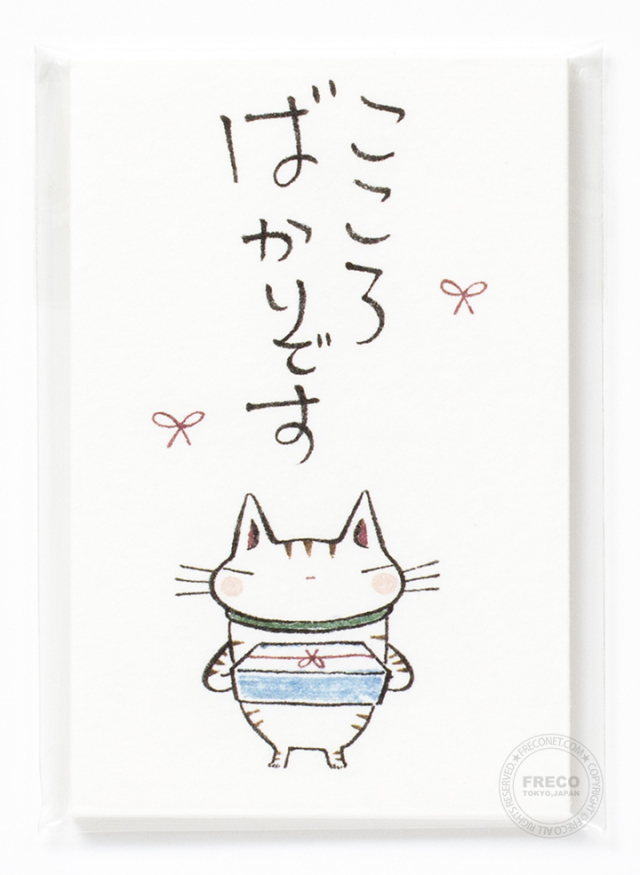 こころ
ばかりです
FRECONET.COM★COPYRIGHT© FRECO ALL RIGHTS RESERVED.★
FRECO
TOKYO,JAPAN